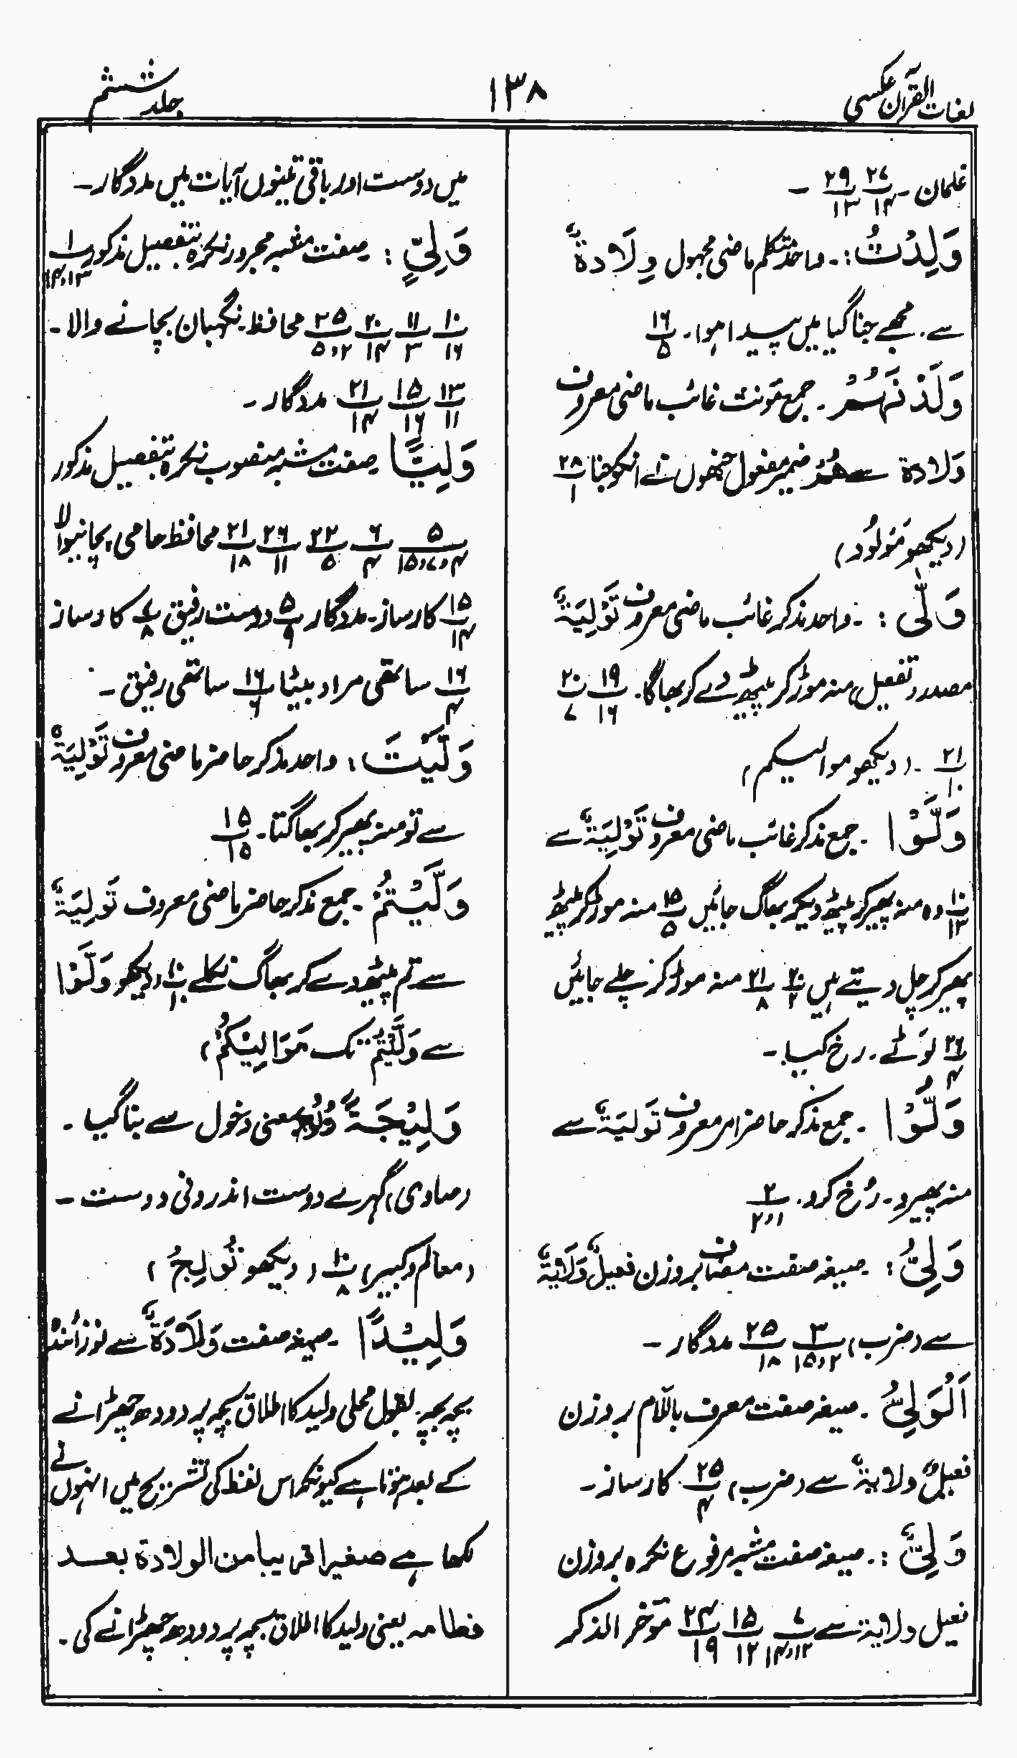 لغات القرآن عکسی
۱۳۸
جلد ششم
غلمان - ۲۷/۱۴ ۲۹/۱۳ -
وَلِدْتُ :- واحد متکلم ماضی مجہول وِلَادةٌ
سے. مجھے جنا گیا میں پیدا ہوا. ۱۶/۵
وَلَدْنَهُمْ - جمع مؤنث غائب ماضی معروف
وَلادة سے هُمْ ضمیر مفعول جنھوں نے انکو جنا ۲۸/۱
(دیکھو مَولُود)
وَلّٰى :- واحد مذکر غائب ماضی معروف تَوْلِيَةٌ
مصدر تفعیل منہ موڑ کر پیٹھ دے کر بھاگا. ۱۹/۱۶ ۲۰/۷
۲۱/۱۰ - (دیکھو موالیکم)
وَلَّوْا - جمع مذکر غائب ماضی معروف تَوْلِيَةٌ سے
۱۰/۱۳ وہ منہ پھیر کر پیٹھ دیکر بھاگ جائیں ۱۵/۵ منہ موڑ کر پیٹھ
پھیر کر چل دیتے ہیں ۲۰/۲ ۲۱/۸ منہ موڑ کر چلے جائیں
۲۶/۴ لَوٹے. رخ کیا. -
وَلُّوْا - جمع مذکر حاضر امر معروف تَولیَةٌ سے
منہ پھیرو - رُخ کرو. ۲/۱،۲
وَلِيُّ : صیغہ صفت مضاف بروزن فعیلٌ وَلَايَةٌ
سے (ضرب) ۳/۱۵،۲ ۲۵/۱۸ مددگار -
اَلْوَلِيُّ - صیغہ صفت معرف باللّام بروزن
فعیلٌ ولایةٌ سے (ضرب) ۲۵/۴ کارساز -
وَلِيٌّ :- صیغہ صفت مشبہ مرفوع نکرہ بروزن
فعیل ولایة سے ۷/۱۴،۱۲ ۱۵/۱۲ ۲۴/۱۹ مؤخر الذکر
میں دوست اور باقی تینوں آیات میں مددگار -
وَلِيٍّ : صفت مشبہ مجرور نکرہ بتفصیل مذکور ۱/۱۴،۱۳
۱۰/۱۶ ۱۱/۳ ۲۰/۱۴ ۲۵/۵،۲ محافظ. نگہبان بچانے والا -
۱۳/۱۱ ۱۵/۱۶ ۲۱/۱۴ مددگار -
وَلِيًّا - صفت مشبہ منصوب نکرہ بتفصیل مذکور
۵/۱۵،۷،۴ ۶/۴ ۲۲/۵ ۲۶/۱۱ ۲۱/۱۸ محافظ حامی بچانیوالا
۱۵/۱۴ کارساز - مددگار ۵/۹ دوست رفیق ۷/۸ کارساز
۱۶/۴ ساتھی مراد بیٹا ۱۶/۶ ساتھی رفیق -
وَلَّيْتَ : واحد مذکر حاضر ماضی معروف تَوْلِيَةٌ
سے تو منہ پھیر کر بھاگتا - ۱۵/۱۵
وَلَّيْتُمْ - جمع مذکر حاضر ماضی معروف تَولیَةٌ
سے تم پیٹھ دے کر بھاگ نکلے ۱۰/۱۰ (دیکھو وَلَّوْا
سے وَلَّيْتُمْ تک مَوَالِيْكُمْ)
وَلِيْجَةً وُلُوج بمعنی دخول سے بنا گیا -
(صاوی) گہرے دوست اندرونی دوست -
(معالم و کبیر) ۱۰/۸ (دیکھو تُولِجُ)
وَلِيْدًا - صیغہ صفت وَلَادَةٌ سے نوزائندہ
بچہ بچہ. بقول محلی ولید کا اطلاق بچہ پر دودھ چھڑانے
کے بعد ہوتا ہے کیونکہ اس لفظ کی تشریح میں انہوں نے
لکھا ہے صغیرا قریبا من الولادة بعد
فطامہ یعنی ولید کا اطلاق بچہ پر دودھ چھڑانے کی.